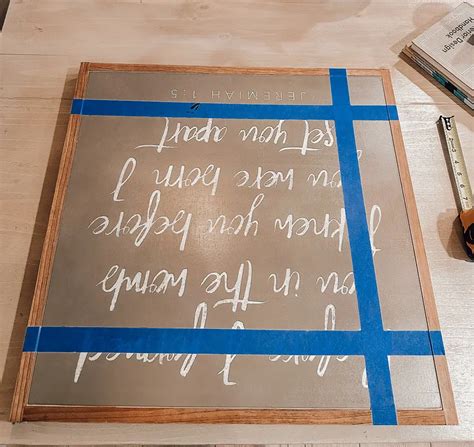 Before I formed
you in the womb
I knew you before
you were born I
set you apart
JEREMIAH 1:5
erior Design
Handbook